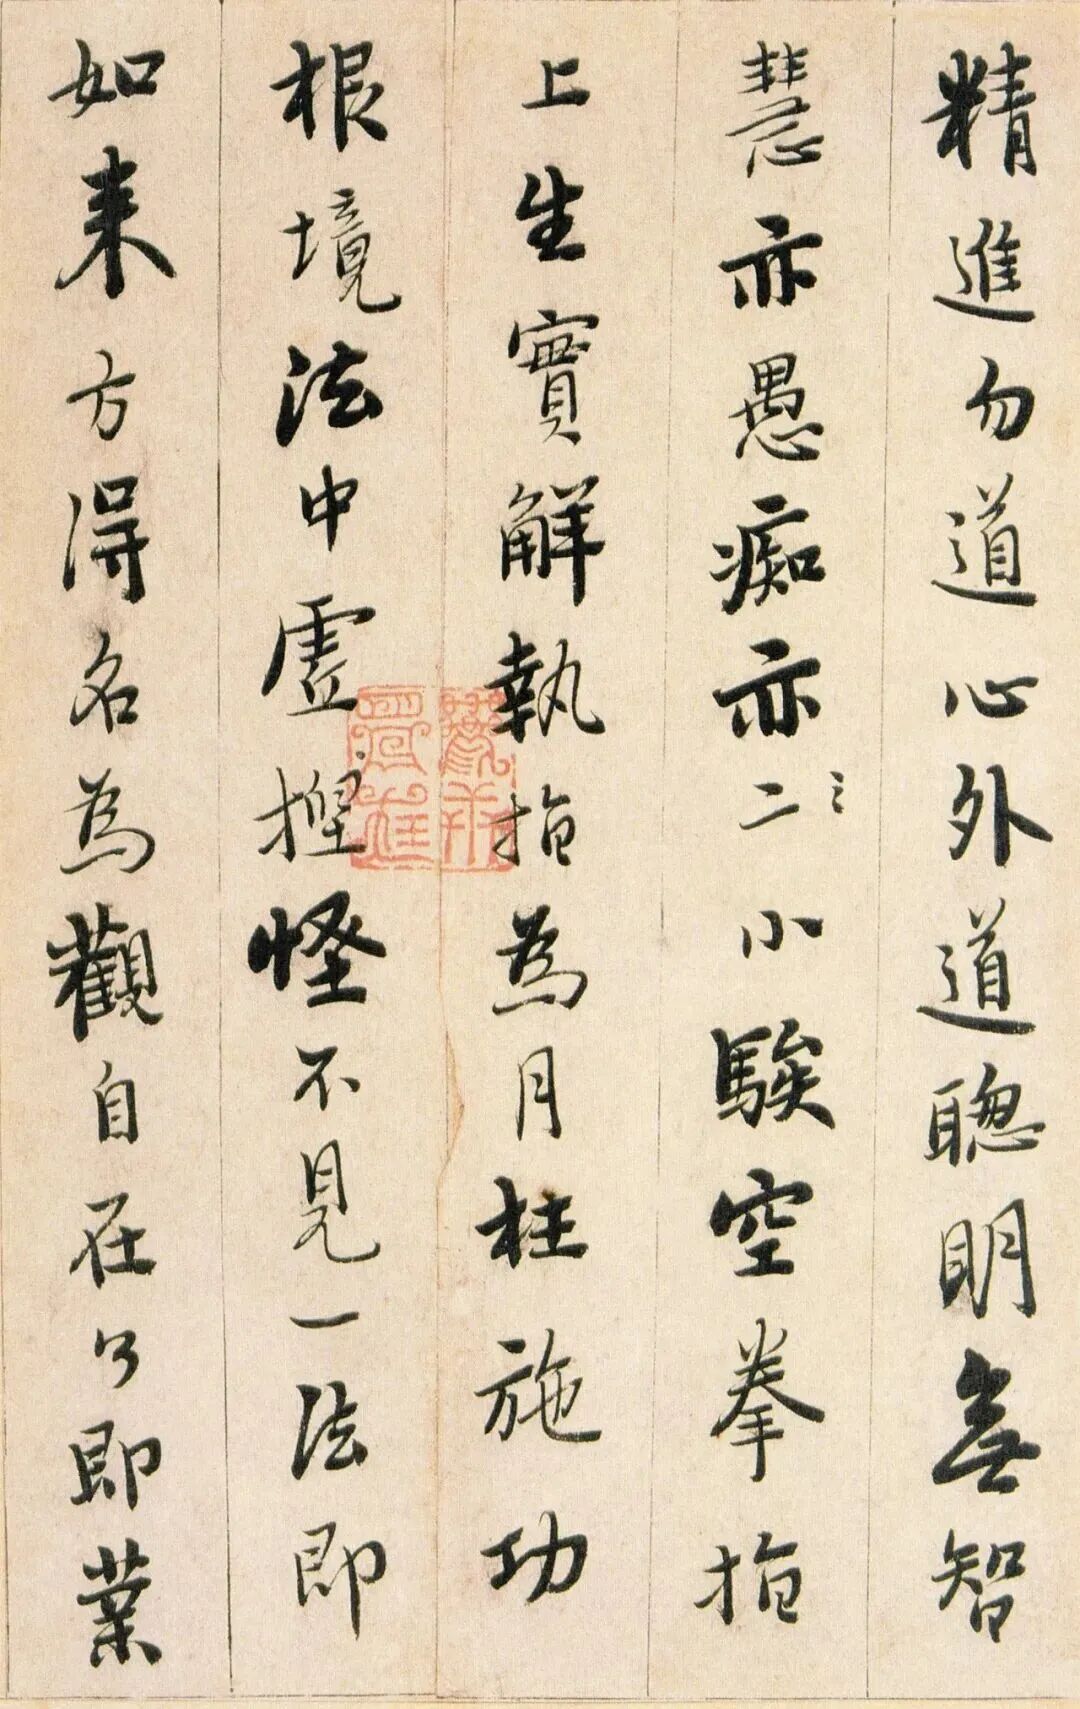 精進勿道心外道聰明無智
慧亦愚癡亦二小騃空拳指
上生實解執指為月枉施功
根境法中虛揑怪不見一法即
如来方得名為觀自在了即業